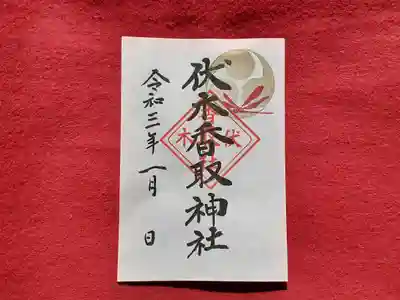 伏木香取神社
令和三年一月 日
伏木
香取